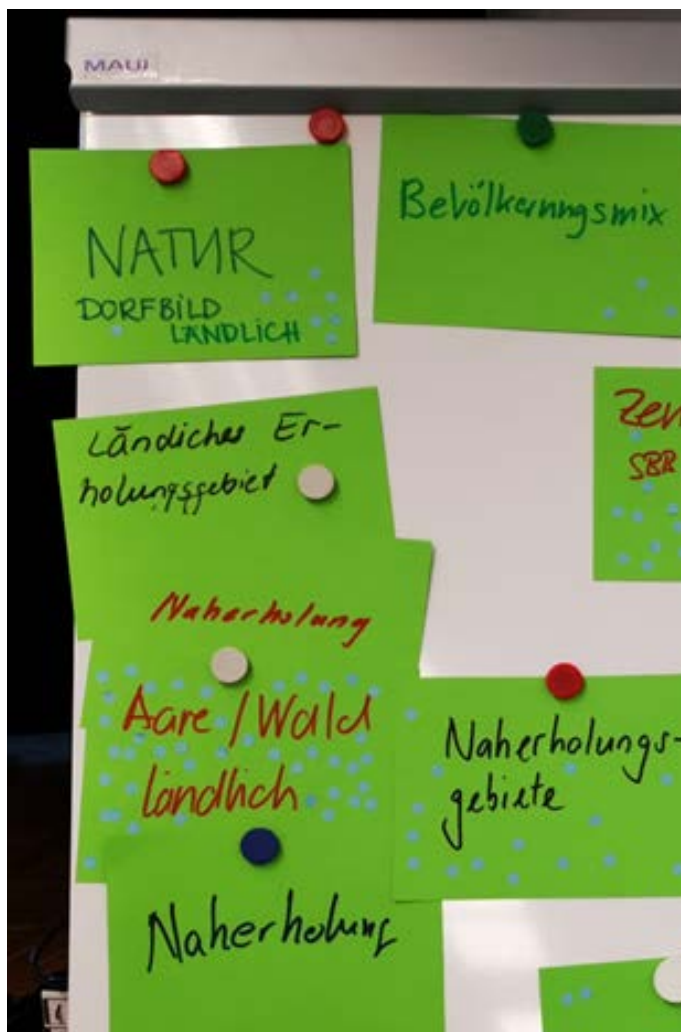 MAUI
NATUR
DORFBILD
LÄNDLICH
Bevölkerungsmix
Ländliches Er-
holungsgebiet
SBB
Naherholung
Aare / Wald
ländlich
Naherholungs-
gebiete
Naherholung